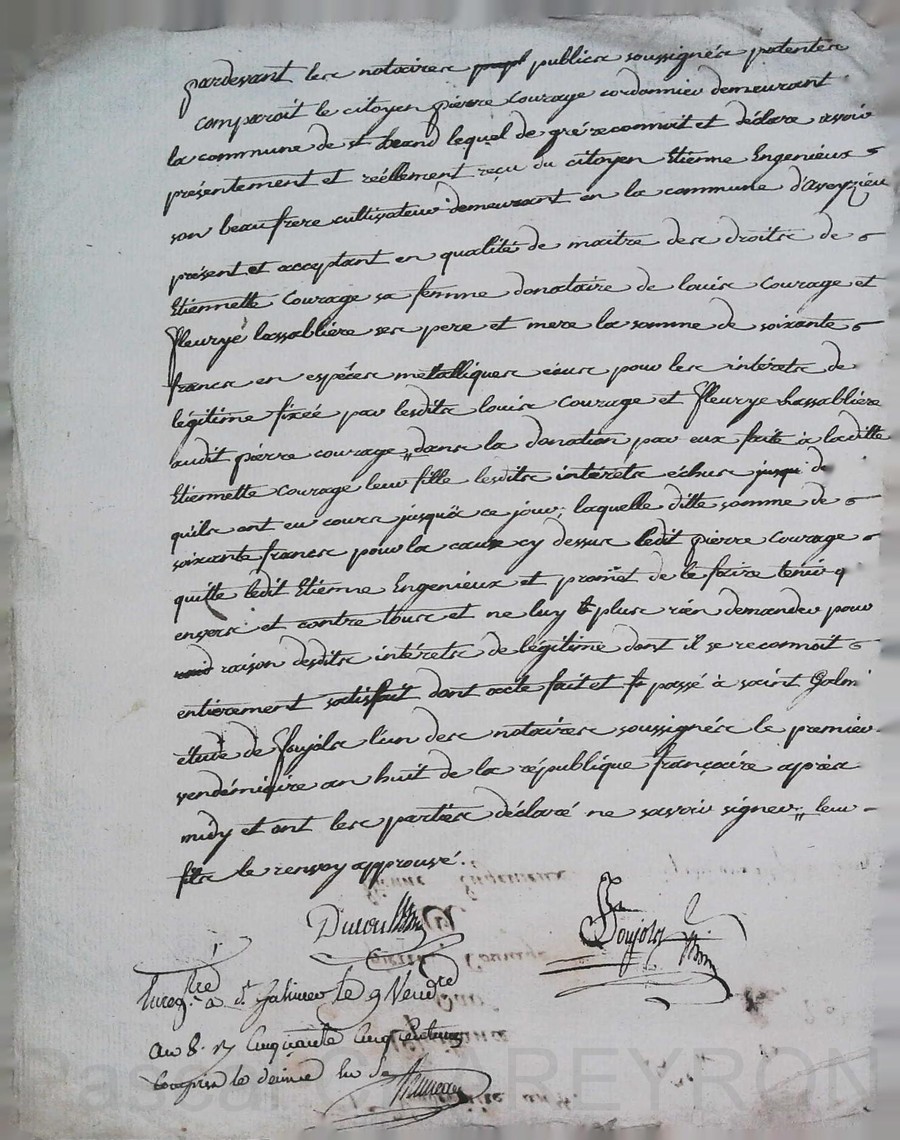 pardevant les notaires publics soussignés patentés
comparoit le citoyen pierre Courage cordonnier demeurant
la commune de st heand lequel de gré reconnoit et déclare avoir
présentement et réellement reçu du citoyen Etienne Engenieux
son beaufrere cultivateur demeurant en la commune d'aveyzieu
présent et acceptant en qualité de maitre des droits de
Etiennette Courage sa femme donataire de louis Courage et
fleurye lassabliere ses pere et mere la somme de soixante
francs en espéces metalliques écus pour les intérets de
légitime fixée par lesdits louis Courage et fleurye lassabliere
audit pierre courage,, dans la donation par eux faite à ladite
Etiennette Courage leur fille lesdits intérets échus jusqu de
qu'ils ont eu cours jusquà ce jour; laquelle ditte somme de
soixante francs pour la cause cy dessus ledit pierre Courage
quitte ledit Etienne Engenieux et promet de le faire tenir q
envers et contre tous et ne luy plus rien demander pour
raison desdits intérets de légitime dont il se reconnoit
entierement satisfait dont acte fait et passé à saint Galmi
étude de foujols l'un des notaires soussignés le premier
vendémiaire an huit de la république françoise après
midy et ont les parties déclaré ne savoir signer,, leur
fils le renvoy approuvé.
foujols
Enreg.ré à st Galmier le 9 Vendre
an 8. r cinquante cinq centimes
compris le décime
Pascal CHAREYRON